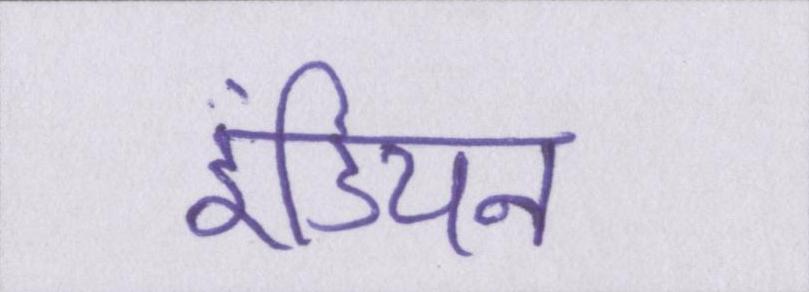 इंडियन